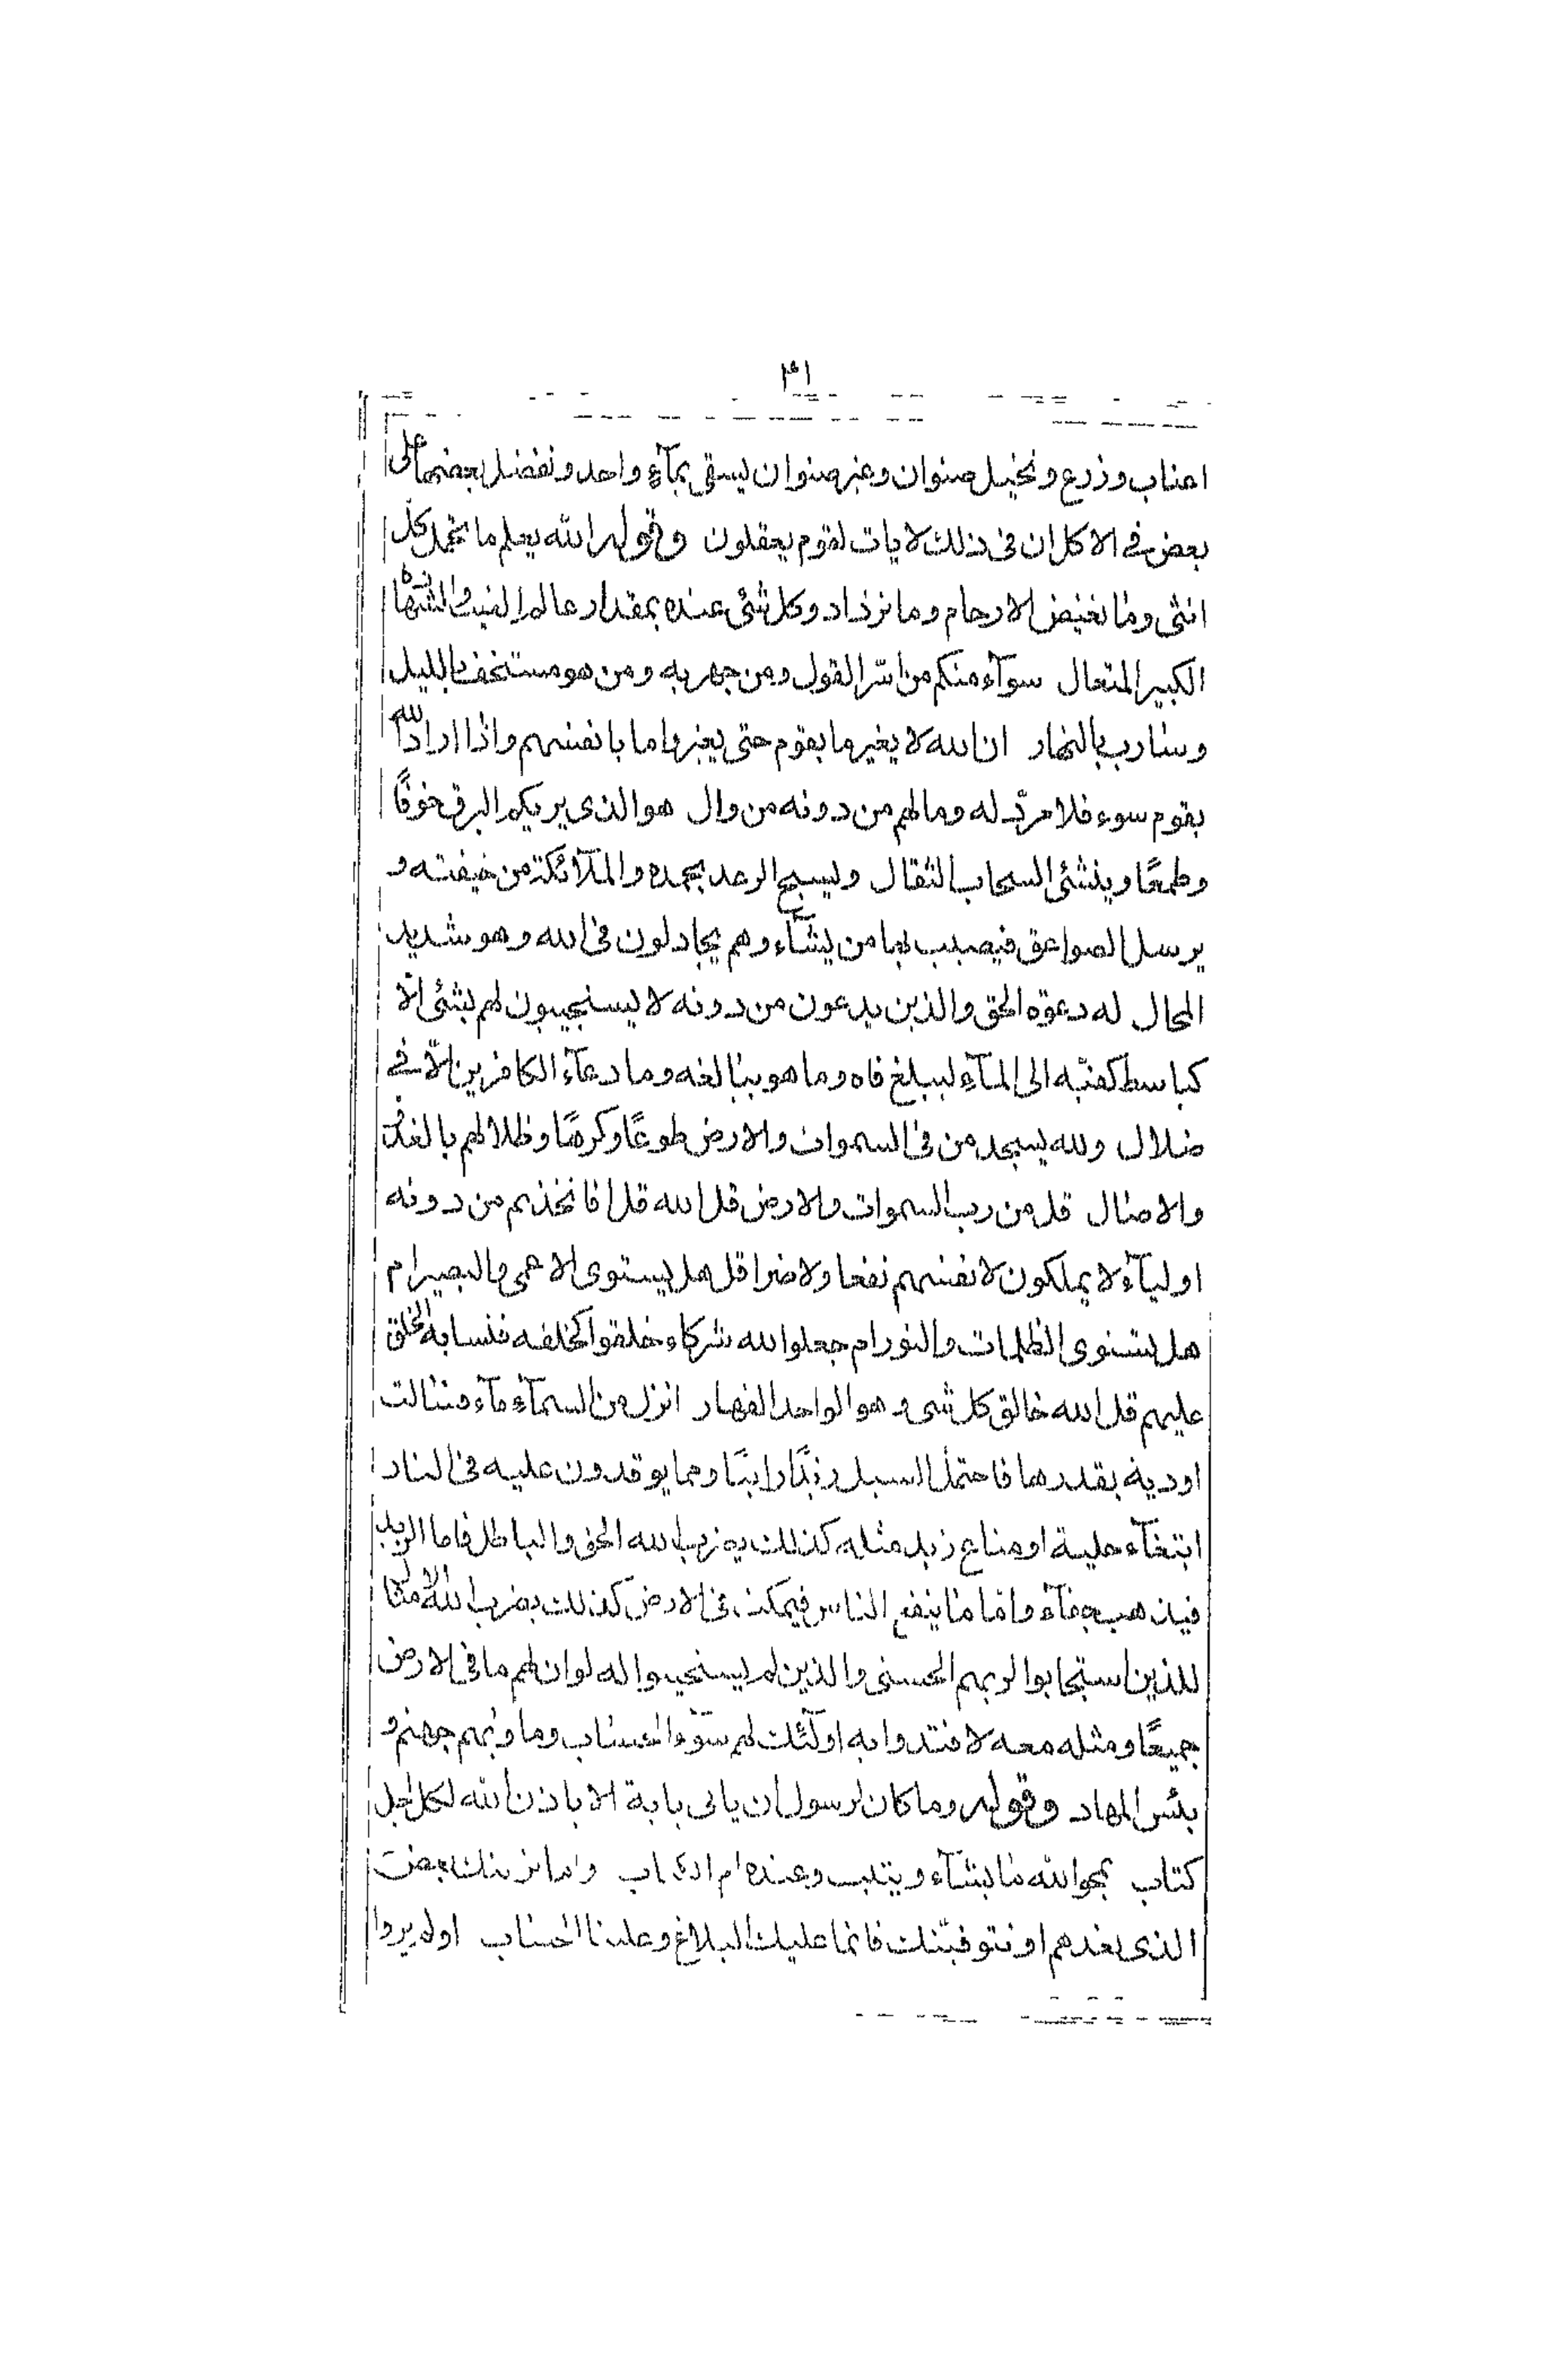 ٣١
اعناب وزرع ونخيل صنوان وغير صنوان يسقى بمآء واحد ونفضل بعضها على
بعض في الاكل ان في ذلك لايات لقوم يعقلون وقوله الله يعلم ما تحمل كل
انثى وما تغيض الارحام وما تزداد وكل شئ عنده بمقدار عالم الغيب والشهادة
الكبير المتعال سوآء منكم من اسّر القول ومن جهر به ومن هو مستخف بالليل
وسارب بالنهار ان الله لا يغير ما بقوم حتى يغيروا ما بانفسهم واذا اراد الله
بقوم سوء فلا مردّ له وما لهم من دونه من وال هو الذى يريكم البرق خوفًا
وطمعًا وينشئ السحاب الثقال ويسبح الرعد بحمده والملآئكة من خيفته و
يرسل الصواعق فيصيب بها من يشآء وهم يجادلون فى الله وهو شديد
المحال له دعوة الحق والذين يدعون من دونه لا يستجيبون لهم بشئ الّا
كباسط كفيّه الى المآء ليبلغ فاه وما هو ببالغه وما دعآء الكافرين الّا في
ضلال ولله يسجد من فى السموات والارض طوعًا وكرهًا وظلالهم بالغدّو
والاصال قل من رب السموات والارض قل الله قل افاتخذتم من دونه
اوليآء لا يملكون لانفسهم نفعا ولا ضرا قل هل يستوى الاعمى والبصير ام
هل يستوى الظلمات والنور ام جعلوا لله شركاء خلقوا كخلقه فتشابه الخلق
عليهم قل الله خالق كل شى وهو الواحد القهار انزل من السمآء مآء فسالت
اودية بقدرها فاحتمل السيل زبدًا رابيًا ومما يوقدون عليه فى النار
ابتغآء حلية او متاع زبد مثله كذلك يضرب الله الحق والباطل فاما الزبد
فيذهب جفآء وامّا ما ينفع الناس فيمكث فى الارض كذلك يضرب الله الامثال
للذين استجابوا لربهم الحسنى والذين لم يستجيبوا له لو ان لهم ما فى الارض
جميعًا ومثله معه لافتدوا به اولٓئك لهم سوٓء الحساب وماويهم جهنم و
بئس المهاد وقوله وما كان لرسول ان ياتى باية الا باذن الله لكل اجل
كتاب يمحو الله ما يشآء ويثبت وعنده ام الكتاب واما نرينك بعض
الذى نعدهم او نتوفيّنك فانما عليك البلاغ وعلينا الحساب اولم يروا